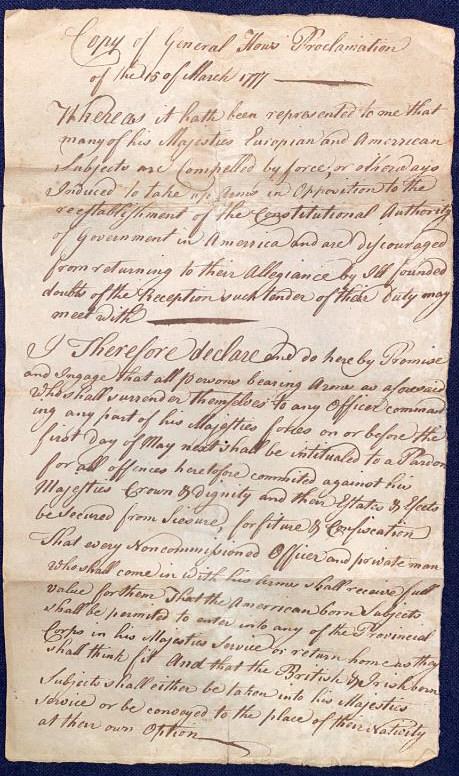 Copy of General Hows Proclamation
of the 15 of March 1777
Whereas it hath been represented to me that
many of his Majesties Europian and Amerrican
Subjects are Compelled by force, or otherways
Induced to take up Arms in Opposition to the
reestablishment of the Constitutional Authority
of Government in Amerrica and are discouraged
from returning to their Allegiance by Ill founded
doubts of the Reception such tender of their Duty may
meet with
I Therefore declare and do here by Promise
and Ingage that all persons bearing Arms as aforesaid
who shall surrender themselves to any Officer command
ing any part of his Majesties forces on or before the
first day of May next shall be intitualed to a Pardon
for all offences heretofore commited against his
Majesties Crown & Dignity and their Estates & Efects
be Secured from Siesure, forfiture & Confiscation
That every Noncommissioned Officer and private man
who shall come in with his Armes shall receive full
value for them That the Amerrican born Subjects
shall be permited to enter into any of the Provincial
Corps in his Majesties Service or return home as they
shall think fit And that the British & Irish born
Subjects shall either be taken into his Majesties
Service or be conveyed to the place of their Nativity
at their own Option